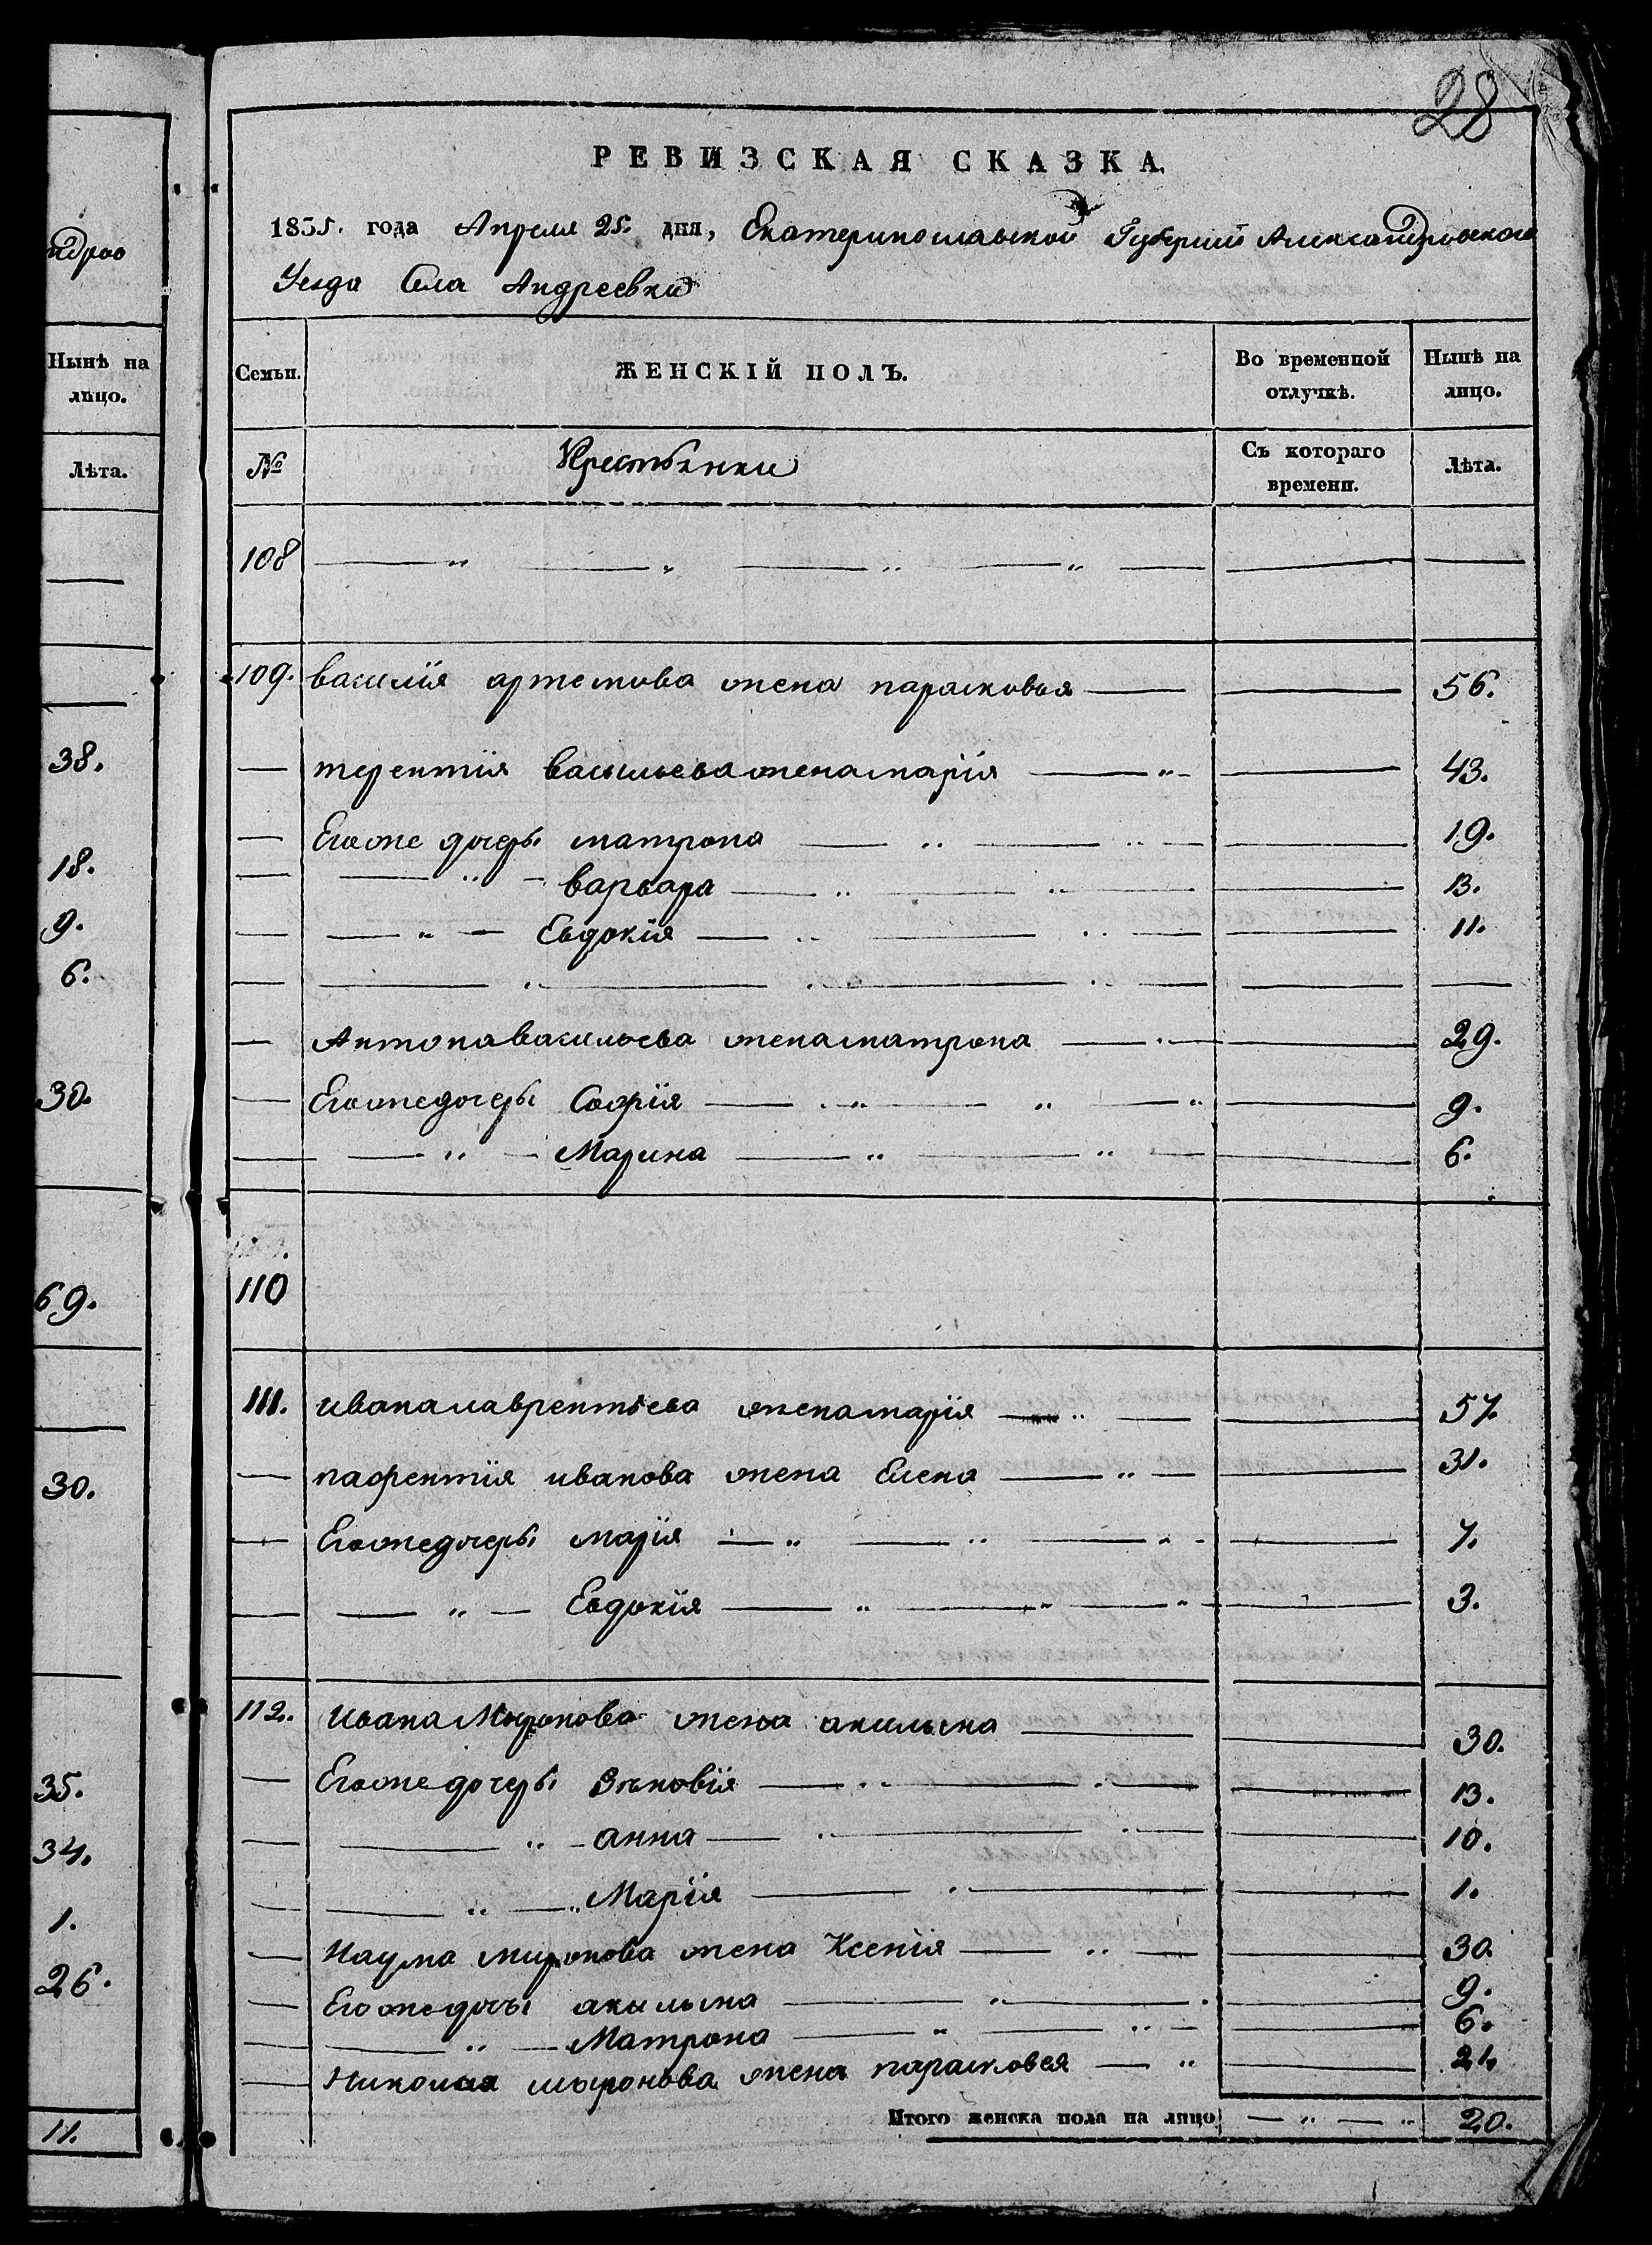 ндров
Нынѣ на
лицо.
Лѣта.
38.
18.
9.
6.
30.
69.
30.
35.
34.
1.
26.
11.
28
РЕВИЗСКАЯ СКАЗКА.
1835. года Апреля 25. дня, Екатеринославской Губерніи Александровского
Уезда Села Андреевки
Семьи. ЖЕНСКІЙ ПОЛЪ. Во временной отлучкѣ. Нынѣ на лицо.
№ Крестьянки Съ котораго времени. Лѣта.
108 — „ — „ — „ — „ —
109. василія артемова жена парасковья — 56.
— терентія васильева жена марія — „ — 43.
— Егоже дочеры матрона — „ — „ — 19.
— — „ — варвара — „ — „ — 13.
— — „ — Евдокія — „ — „ — 11.
— Антона васильева жена матрона — „ — 29.
— Егоже дочеры Софія — „ — „ — „ 9.
— — „ — Марина — „ — „ — 6.
110
111. ивана лаврентьева жена марія — „ — 57.
— пафрентія иванова жена Елена — „ — 31.
— Егоже дочеры марія — „ — „ — „ — 7.
— — „ — Евдокія — „ — „ — „ — 3.
112. ивана Мыронова жена акилына — 30.
— Егоже дочеры Зѣновія — „ — „ — 13.
— — „ — анна — „ — „ — 10.
— — „ — „ Марія — „ — 1.
— Наума миронова жена Ксенія — „ — 30.
— Егоже дочы акылына — „ — 9.
— — „ — Матрона — „ — „ — 6.
— Николая мыронова жена парасковея — „ 21.
Итого женска пола на лицо — „ — „ 20.